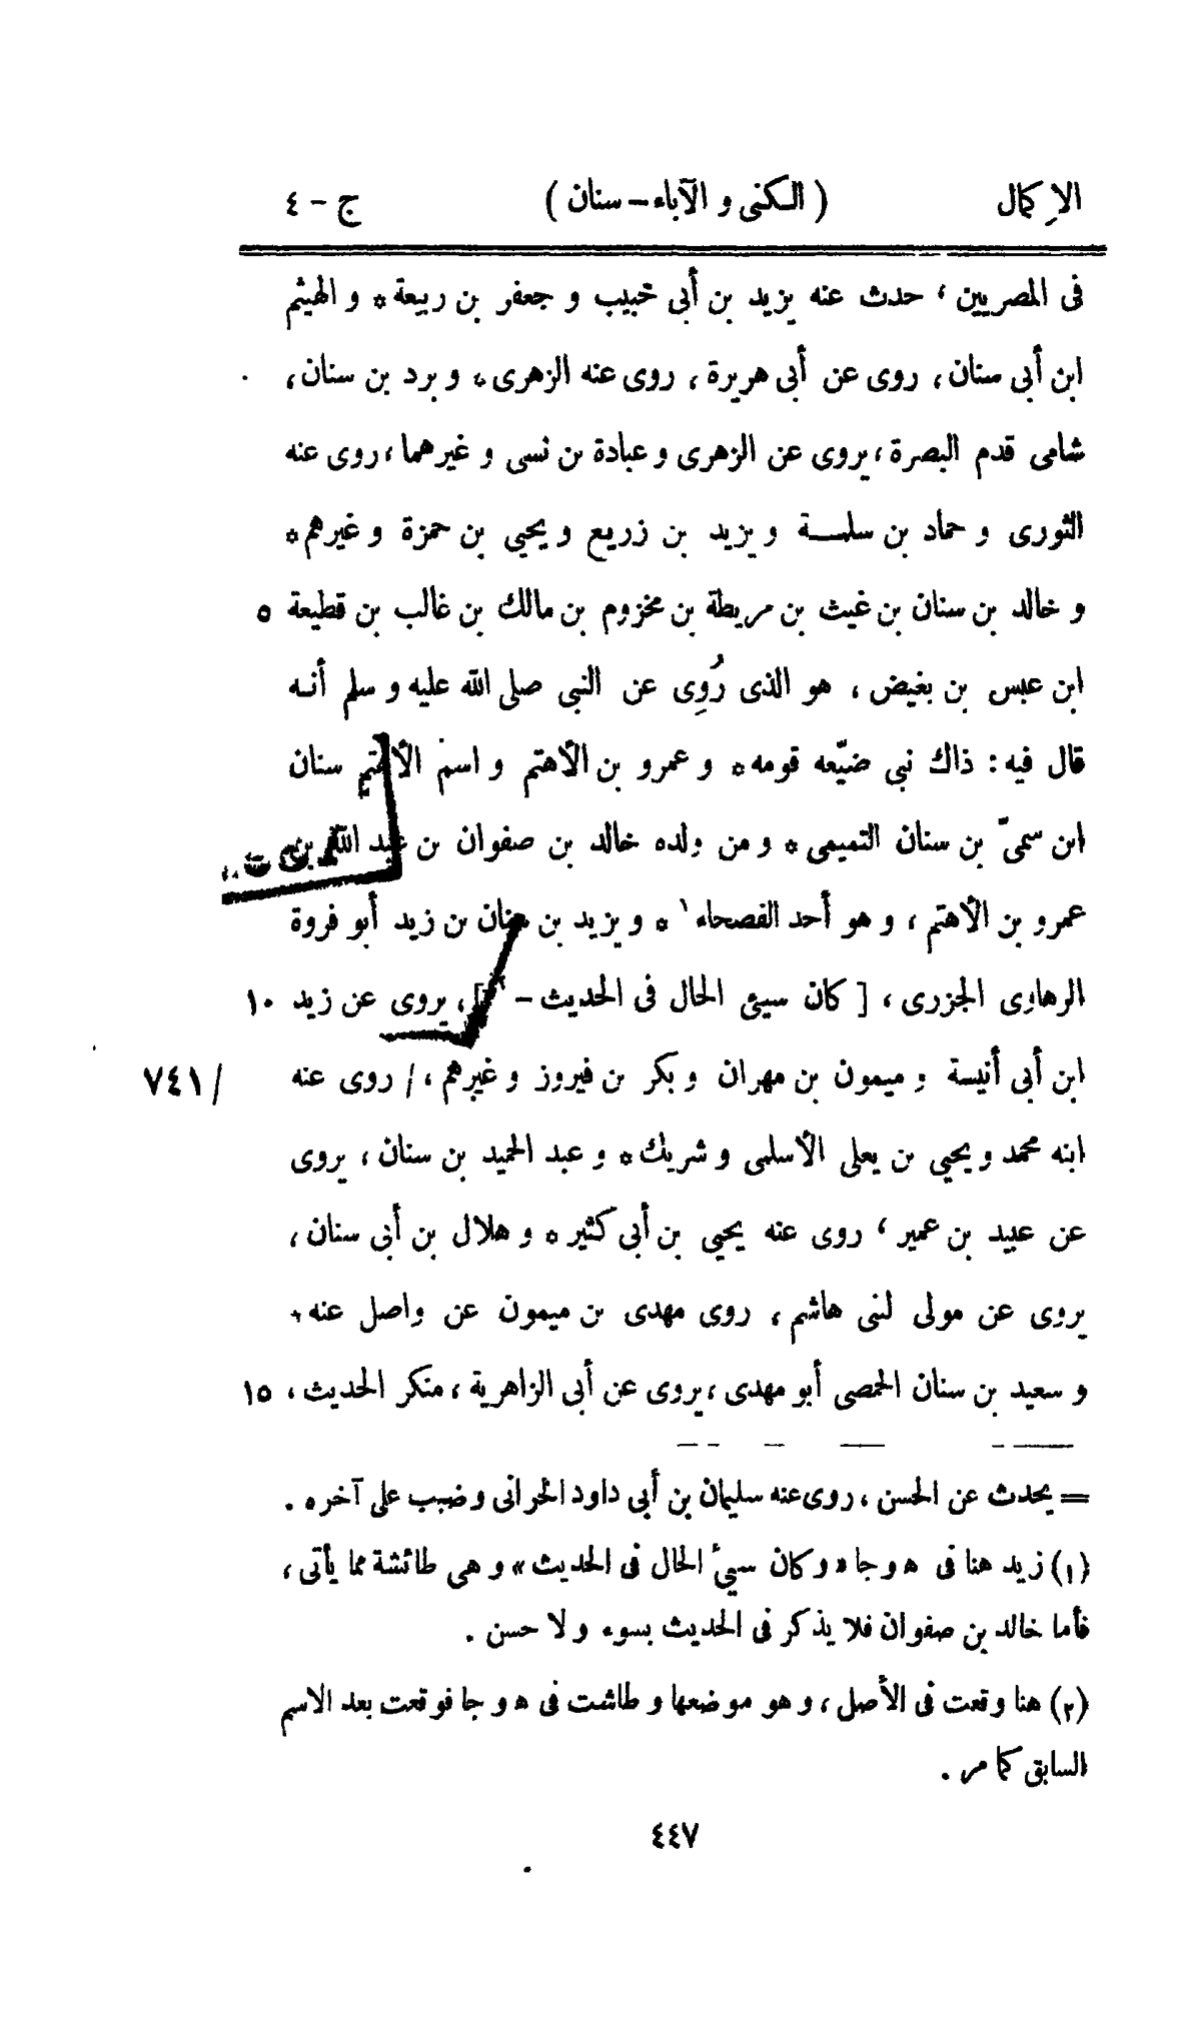 الإكمال ( الكنى و الآباء – سنان ) ج – ٤
فى المصريين ، حدث عنه يزيد بن أبى حبيب و جعفر بن ربيعة * و الهيثم
ابن أبى سنان ، روى عن أبى هريرة ، روى عنه الزهرى * و برد بن سنان ،
شامى قدم البصرة ، يروى عن الزهرى و عبادة بن نسى و غيرهما ، روى عنه
الثورى و حماد بن سلمة و يزيد بن زريع و يحيى بن حمزة و غيرهم *
و خالد بن سنان بن غيث بن مريطة بن مخزوم بن مالك بن غالب بن قطيعة ٥
ابن عبس بن بغيض ، هو الذى رُوِى عن النبى صلى الله عليه و سلم أنه
قال فيه : ذاك نبى ضيّعه قومه * و عمرو بن الأهتم و اسم الأهتم سنان
ابن سمىّ بن سنان التميمى * و من ولده خالد بن صفوان بن عبد الله بن
عمرو بن الأهتم ، و هو أحد الفصحاء ١ * و يزيد بن سنان بن زيد أبو فروة
الرهاوى الجزرى ، [ كان سيئ الحال فى الحديث – ٢ ] ، يروى عن زيد ١٠
ابن أبى أنيسة و ميمون بن مهران و بكر بن فيروز و غيرهم ، / روى عنه / ٧٤١
ابنه محمد و يحيى بن يعلى الأسلمى و شريك * و عبد الحميد بن سنان ، يروى
عن عبيد بن عمير ، روى عنه يحيى بن أبى كثير * و هلال بن أبى سنان ،
يروى عن مولى لبنى هاشم ، روى مهدى بن ميمون عن واصل عنه *
و سعيد بن سنان الحمصى أبو مهدى ، يروى عن أبى الزاهرية ، منكر الحديث ، ١٥
= يحدث عن الحسن ، روى عنه سليمان بن أبى داود الحرانى و ضبب على آخره .
(١) زيد هنا فى ه و جا « و كان سيئ الحال فى الحديث » و هى طائشة مما يأتى ،
فأما خالد بن صفوان فلا يذكر فى الحديث بسوء و لا حسن .
(٢) هنا وقعت فى الأصل ، و هو موضعها و طاشت فى ه و جا فوقعت بعد الاسم
السابق كما مر .
٤٤٧